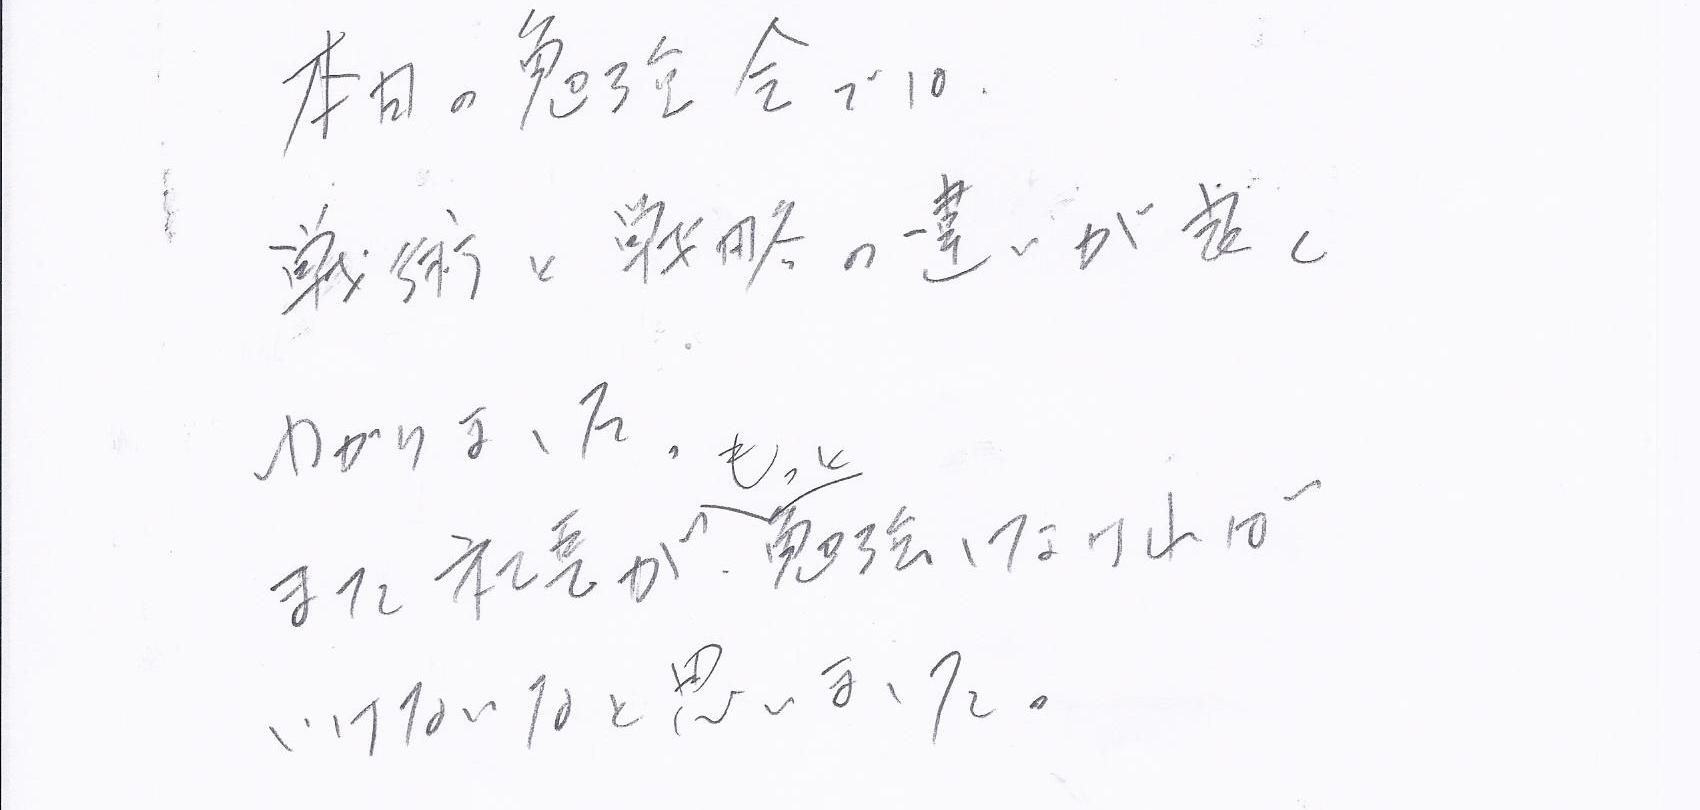 本日の勉強会では、
戦術と戦略の違いが良く
わかりました。
また社長がもっと勉強しなければ
いけないなと思いました。